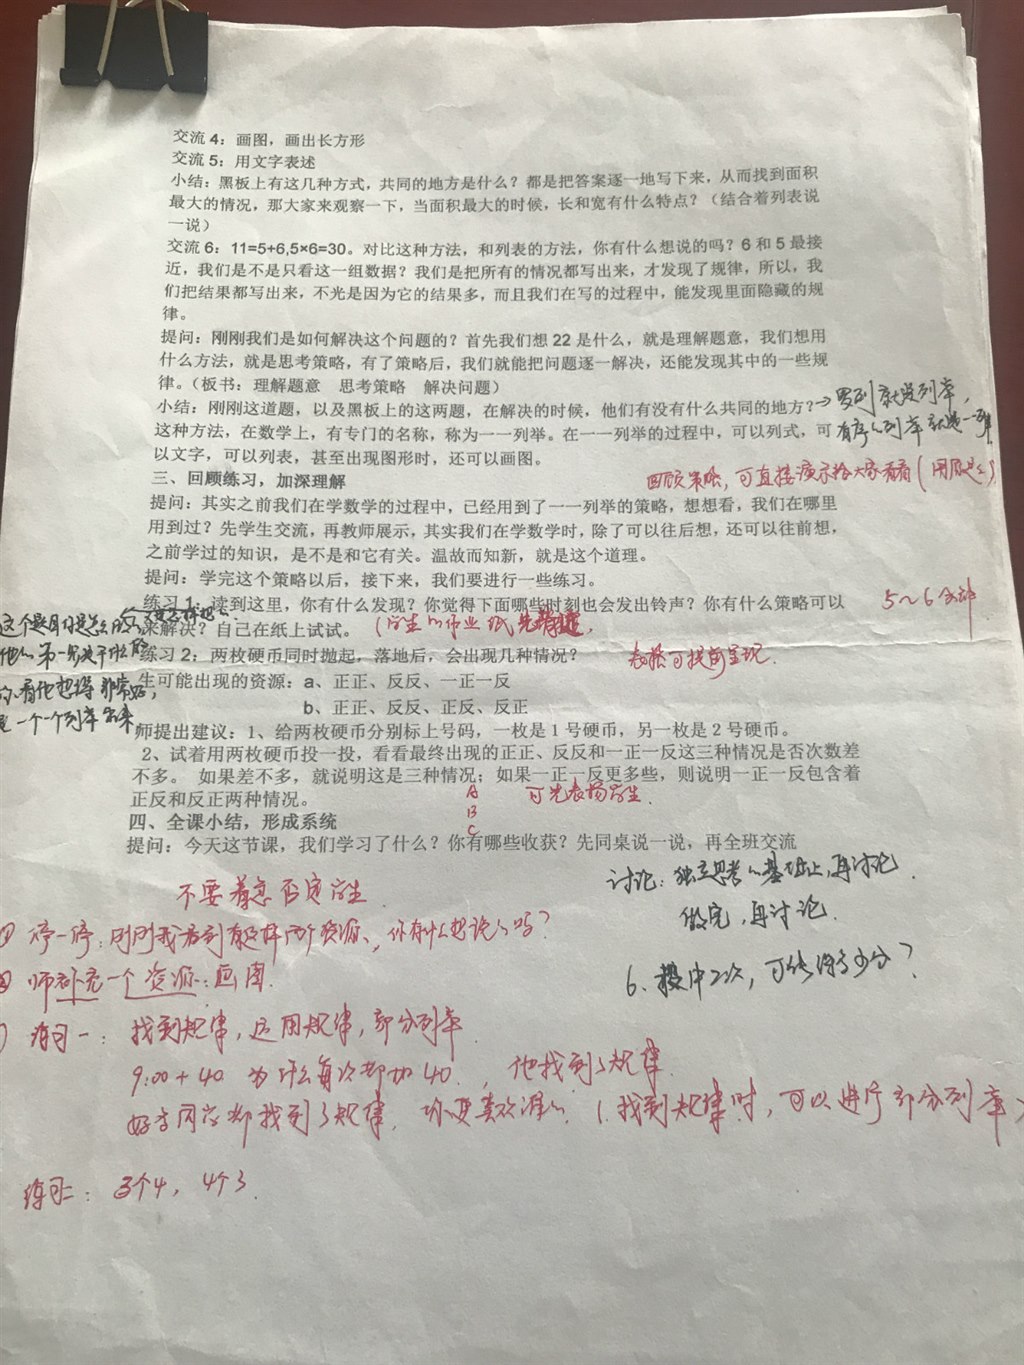 交流 4：画图，画出长方形
交流 5：用文字表述
小结：黑板上有这几种方式，共同的地方是什么？都是把答案逐一地写下来，从而找到面积
最大的情况，那大家来观察一下，当面积最大的时候，长和宽有什么特点？（结合着列表说
一说）
交流 6：11=5+6,5×6=30。对比这种方法，和列表的方法，你有什么想说的吗？6 和 5 最接
近，我们是不是只看这一组数据？我们是把所有的情况都写出来，才发现了规律，所以，我
们把结果都写出来，不光是因为它的结果多，而且我们在写的过程中，能发现里面隐藏的规
律。
提问：刚刚我们是如何解决这个问题的？首先我们想 22 是什么，就是理解题意，我们想用
什么方法，就是思考策略，有了策略后，我们就能把问题逐一解决，还能发现其中的一些规
律。（板书：理解题意 思考策略 解决问题）
小结：刚刚这道题，以及黑板上的这两题，在解决的时候，他们有没有什么共同的地方？→罗列就是列举，
这种方法，在数学上，有专门的名称，称为一一列举。在一一列举的过程中，可以列式，可
有序的列举就是一一列举
以文字，可以列表，甚至出现图形时，还可以画图。
回顾策略，可直接演示给大家看看
三、回顾练习，加深理解
提问：其实之前我们在学数学的过程中，已经用到了一一列举的策略，想想看，我们在哪里
用到过？先学生交流，再教师展示，其实我们在学数学时，除了可以往后想，还可以往前想，
之前学过的知识，是不是和它有关。温故而知新，就是这个道理。
提问：学完这个策略以后，接下来，我们要进行一些练习。
练习 1：读到这里，你有什么发现？你觉得下面哪些时刻也会发出铃声？你有什么策略可以
5～6分钟
来解决？自己在纸上试试。（学生的作业纸
这个题目
练习 2：两枚硬币同时抛起，落地后，会出现几种情况？
表格可提前呈现.
他的第一步
生可能出现的资源：a、正正、反反、一正一反
看他想得非常好，
b、正正、反反、正反、反正
一个一个列举出来
师提出建议：1、给两枚硬币分别标上号码，一枚是 1 号硬币，另一枚是 2 号硬币。
2、试着用两枚硬币投一投，看看最终出现的正正、反反和一正一反这三种情况是否次数差
不多。 如果差不多，就说明这是三种情况；如果一正一反更多些，则说明一正一反包含着
正反和反正两种情况。
A
B
C
可先表扬学生.
四、全课小结，形成系统
提问：今天这节课，我们学习了什么？你有哪些收获？先同桌说一说，再全班交流
讨论：独立思考的基础上，再讨论.
不要着急否定学生.
做完，再讨论.
停一停：刚刚我看到有这样两个资源，你有什么想说的吗？
6、投中2次，可能得多少分？
② 师补充一个资源：画图.
练习一：找到规律，运用规律，部分列举
9:00+40 为什么每次都加40，他找到了规律.
好多同学都找到了规律，你更喜欢谁的 1.找到规律时，可以进行部分列举
练习二：3个4，4个3.